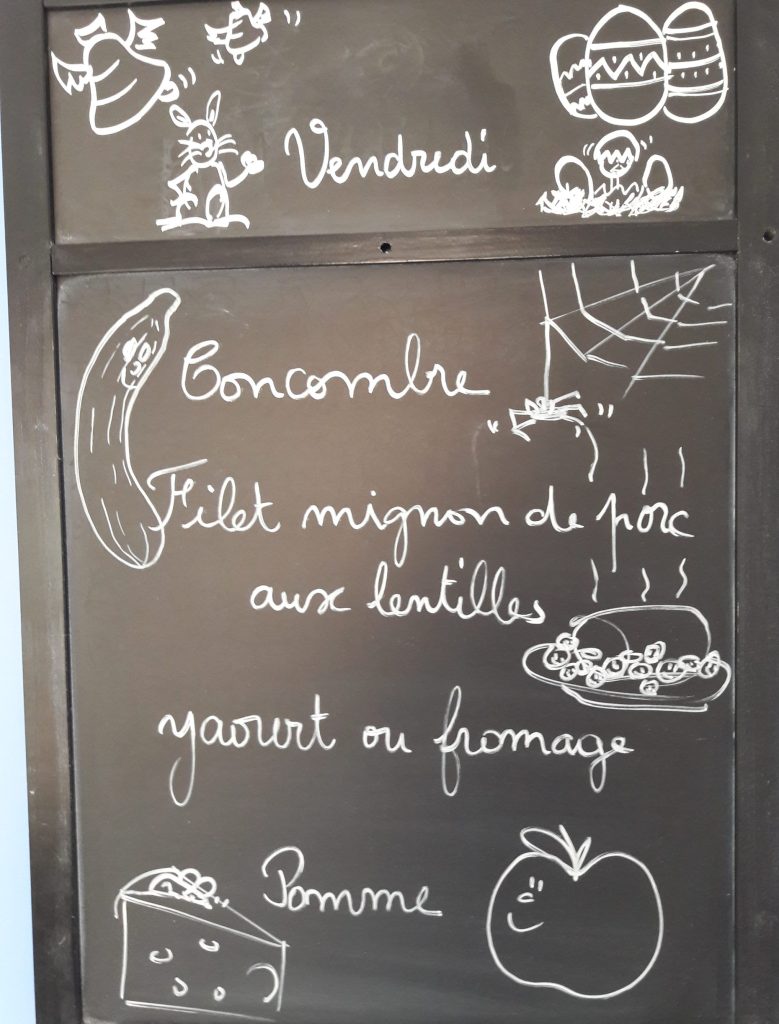 Vendredi
Concombre
Filet mignon de porc
aux lentilles
yaourt ou fromage
Pomme